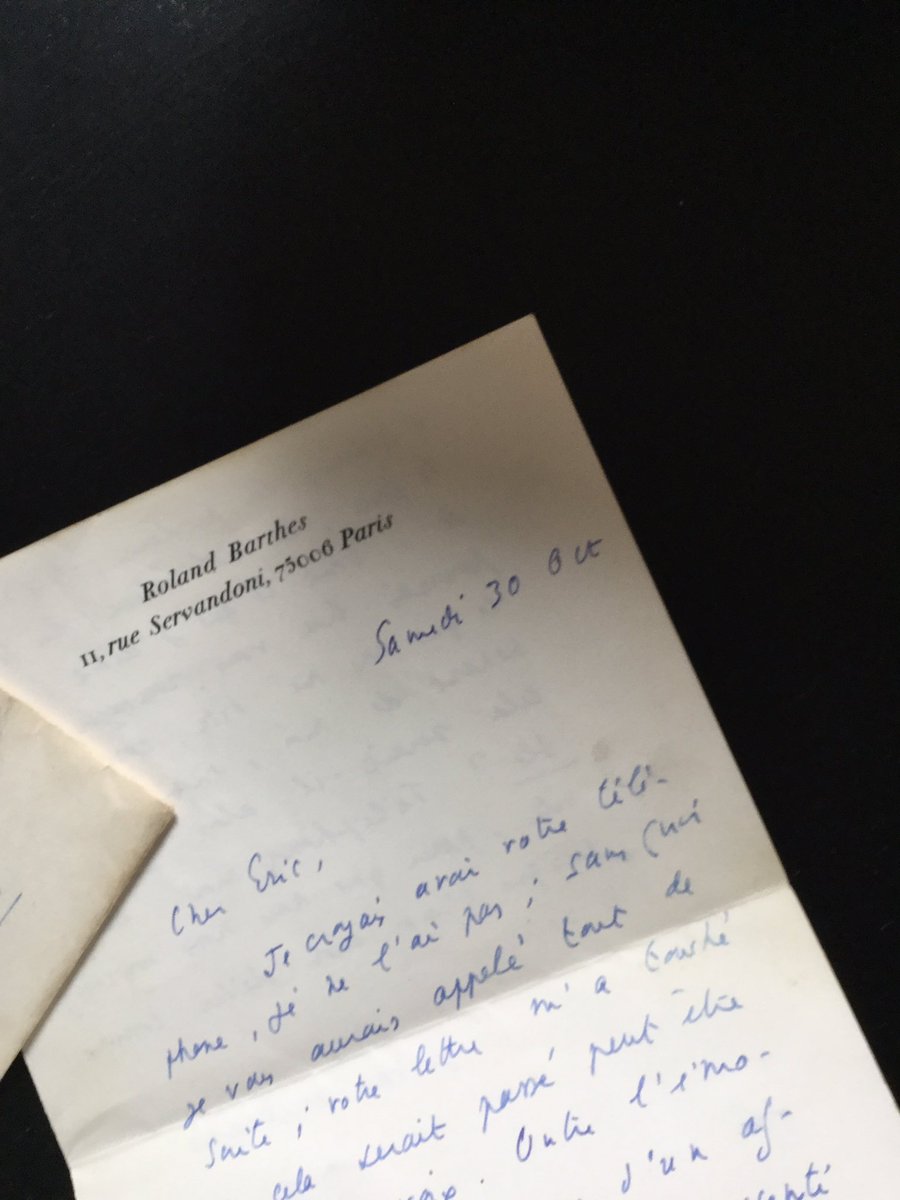 Roland Barthes
11, rue Servandoni, 75006 Paris
Samedi 30 Oct
Cher Eric,
Je croyais avoir votre télé-
phone, je ne l'ai pas ; sans quoi
je vous aurais appelé tout de
suite ; votre lettre m'a touché
cela serait passé peut être
Outre l'émo-
d'un af-